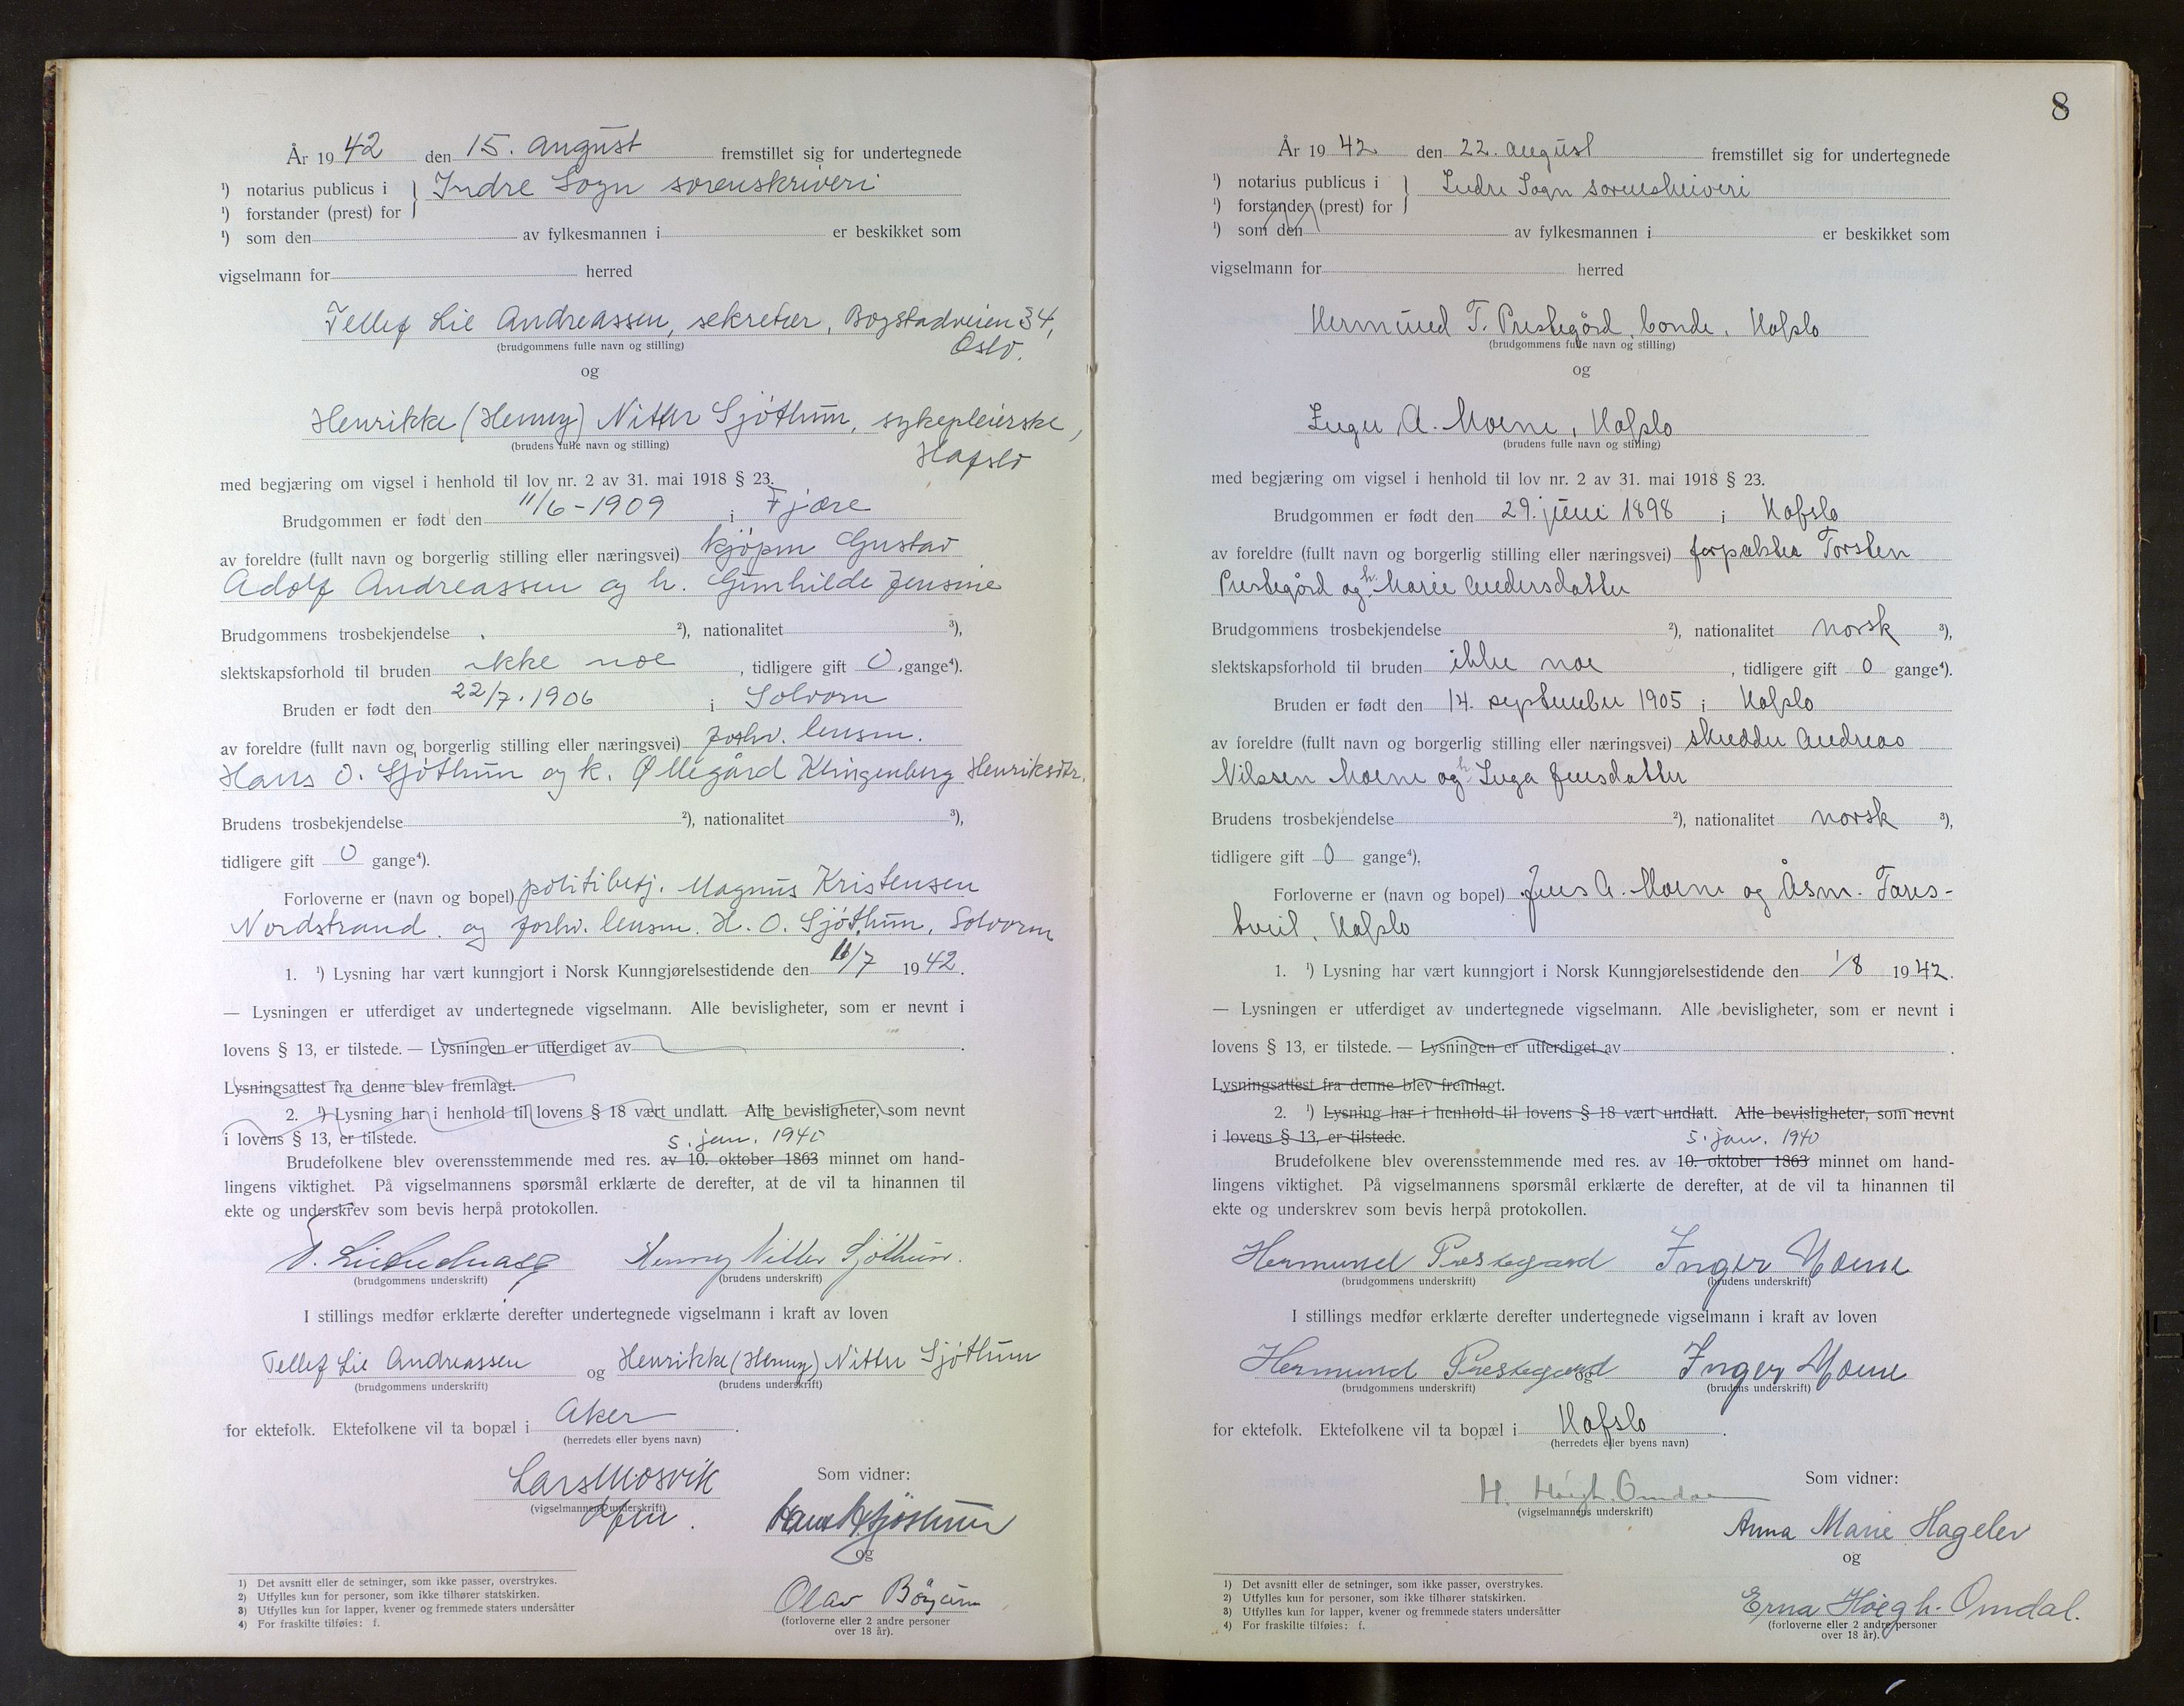 År 1942 den 15. august fremstillet sig for undertegnede
¹) notarius publicus i } Indre Sogn sorenskriveri
¹) forstander (prest) for
¹) som den av fylkesmannen i er beskikket som
vigselmann for herred
Tellef Lie Andreassen, sekretær, Bogstadveien 34,
Oslo.
(brudgommens fulle navn og stilling)
og
Henrikke (Henny) Nitter Sjøthun, sykepleierske,
(brudens fulle navn og stilling)
Hafslo
med begjæring om vigsel i henhold til lov nr. 2 av 31. mai 1918 § 23.
Brudgommen er født den 11/6-1909 i Fjære
av foreldre (fullt navn og borgerlig stilling eller næringsvei) kjøpm Gustav
Adolf Andreassen og h. Gunhilde Jensine
Brudgommens trosbekjendelse ²), nationalitet ³),
slektskapsforhold til bruden ikke noe, tidligere gift 0 gange⁴).
Bruden er født den 22/7.1906 i Solvorn
av foreldre (fullt navn og borgerlig stilling eller næringsvei) forhv. lensm.
Hans O. Sjøthun og k. Øllegård Klingenberg Henriksdtr.
Brudens trosbekjendelse ²), nationalitet ³),
tidligere gift 0 gange⁴).
Forloverne er (navn og bopel) politibetj. Magnus Kristensen
Nordstrand. og forhv. lensm. H. O. Sjøthun, Solvorn
1. ¹) Lysning har vært kunngjort i Norsk Kunngjørelsestidende den /7 1942.
— Lysningen er utferdiget av undertegnede vigselmann. Alle bevisligheter, som er nevnt i
lovens § 13, er tilstede. — Lysningen er utferdiget av .
Lysningsattest fra denne blev fremlagt.
2. ¹) Lysning har i henhold til lovens § 18 vært undlatt. Alle bevisligheter, som nevnt
i lovens § 13, er tilstede.
5. jan. 1940
Brudefolkene blev overensstemmende med res. av 10. oktober 1863 minnet om hand-
lingens viktighet. På vigselmannens spørsmål erklærte de derefter, at de vil ta hinannen til
ekte og underskrev som bevis herpå protokollen.
Henny Nitter Sjøthun.
(brudgommens underskrift) (brudens underskrift)
I stillings medfør erklærte derefter undertegnede vigselmann i kraft av loven
Tellef Lie Andreassen og Henrikke (Henny) Nitter Sjøthun
(brudgommens underskrift) (brudens underskrift)
for ektefolk. Ektefolkene vil ta bopæl i Aker.
(herredets eller byens navn)
Lars Mosvik Som vidner:
(vigselmannens underskrift)
Hans Sjøthun
og
Olav
(forloverne eller 2 andre personer
over 18 år).
1) Det avsnitt eller de setninger, som ikke passer, overstrykes.
2) Utfylles kun for personer, som ikke tilhører statskirken.
3) Utfylles kun for lapper, kvener og fremmede staters undersåtter
4) For fraskilte tilføies: f.
8
År 1942 den 22. august fremstillet sig for undertegnede
¹) notarius publicus i } Indre Sogn sorenskriveri
¹) forstander (prest) for
¹) som den av fylkesmannen i er beskikket som
vigselmann for herred
Hermund T. Prestegård, bonde, Hafslo
(brudgommens fulle navn og stilling)
og
Inger A. Moene, Hafslo
(brudens fulle navn og stilling)
med begjæring om vigsel i henhold til lov nr. 2 av 31. mai 1918 § 23.
Brudgommen er født den 29. juni 1898 i Hafslo
av foreldre (fullt navn og borgerlig stilling eller næringsvei) forpakter Torsten
Prestegård og h. Marie Andersdatter
Brudgommens trosbekjendelse ²), nationalitet norsk ³),
slektskapsforhold til bruden ikke noe, tidligere gift 0 gange⁴).
Bruden er født den 14. september 1905 i Hafslo
av foreldre (fullt navn og borgerlig stilling eller næringsvei) skredder Andreas
Nilssen Moene og h. Inga Jensdatter
Brudens trosbekjendelse ²), nationalitet norsk ³),
tidligere gift 0 gange⁴).
Forloverne er (navn og bopel) Jens A. Moene og Åsm. Fares-
tveit, Hafslo
1. ¹) Lysning har vært kunngjort i Norsk Kunngjørelsestidende den 1/8 1942.
— Lysningen er utferdiget av undertegnede vigselmann. Alle bevisligheter, som er nevnt i
lovens § 13, er tilstede. — Lysningen er utferdiget av .
Lysningsattest fra denne blev fremlagt.
2. ¹) Lysning har i henhold til lovens § 18 vært undlatt. Alle bevisligheter, som nevnt
i lovens § 13, er tilstede.
5. jan. 1940
Brudefolkene blev overensstemmende med res. av 10. oktober 1863 minnet om hand-
lingens viktighet. På vigselmannens spørsmål erklærte de derefter, at de vil ta hinannen til
ekte og underskrev som bevis herpå protokollen.
Hermund Prestegaard Inger Moene
(brudgommens underskrift) (brudens underskrift)
I stillings medfør erklærte derefter undertegnede vigselmann i kraft av loven
Hermund Prestegaard og Inger Moene
(brudgommens underskrift) (brudens underskrift)
for ektefolk. Ektefolkene vil ta bopæl i Hafslo.
(herredets eller byens navn)
Som vidner:
H. Høegh. Omdal
(vigselmannens underskrift)
Anna Marie Hagelev
og
Erna Høegh-Omdal.
(forloverne eller 2 andre personer
over 18 år).
1) Det avsnitt eller de setninger, som ikke passer, overstrykes.
2) Utfylles kun for personer, som ikke tilhører statskirken.
3) Utfylles kun for lapper, kvener og fremmede staters undersåtter
4) For fraskilte tilføies: f.